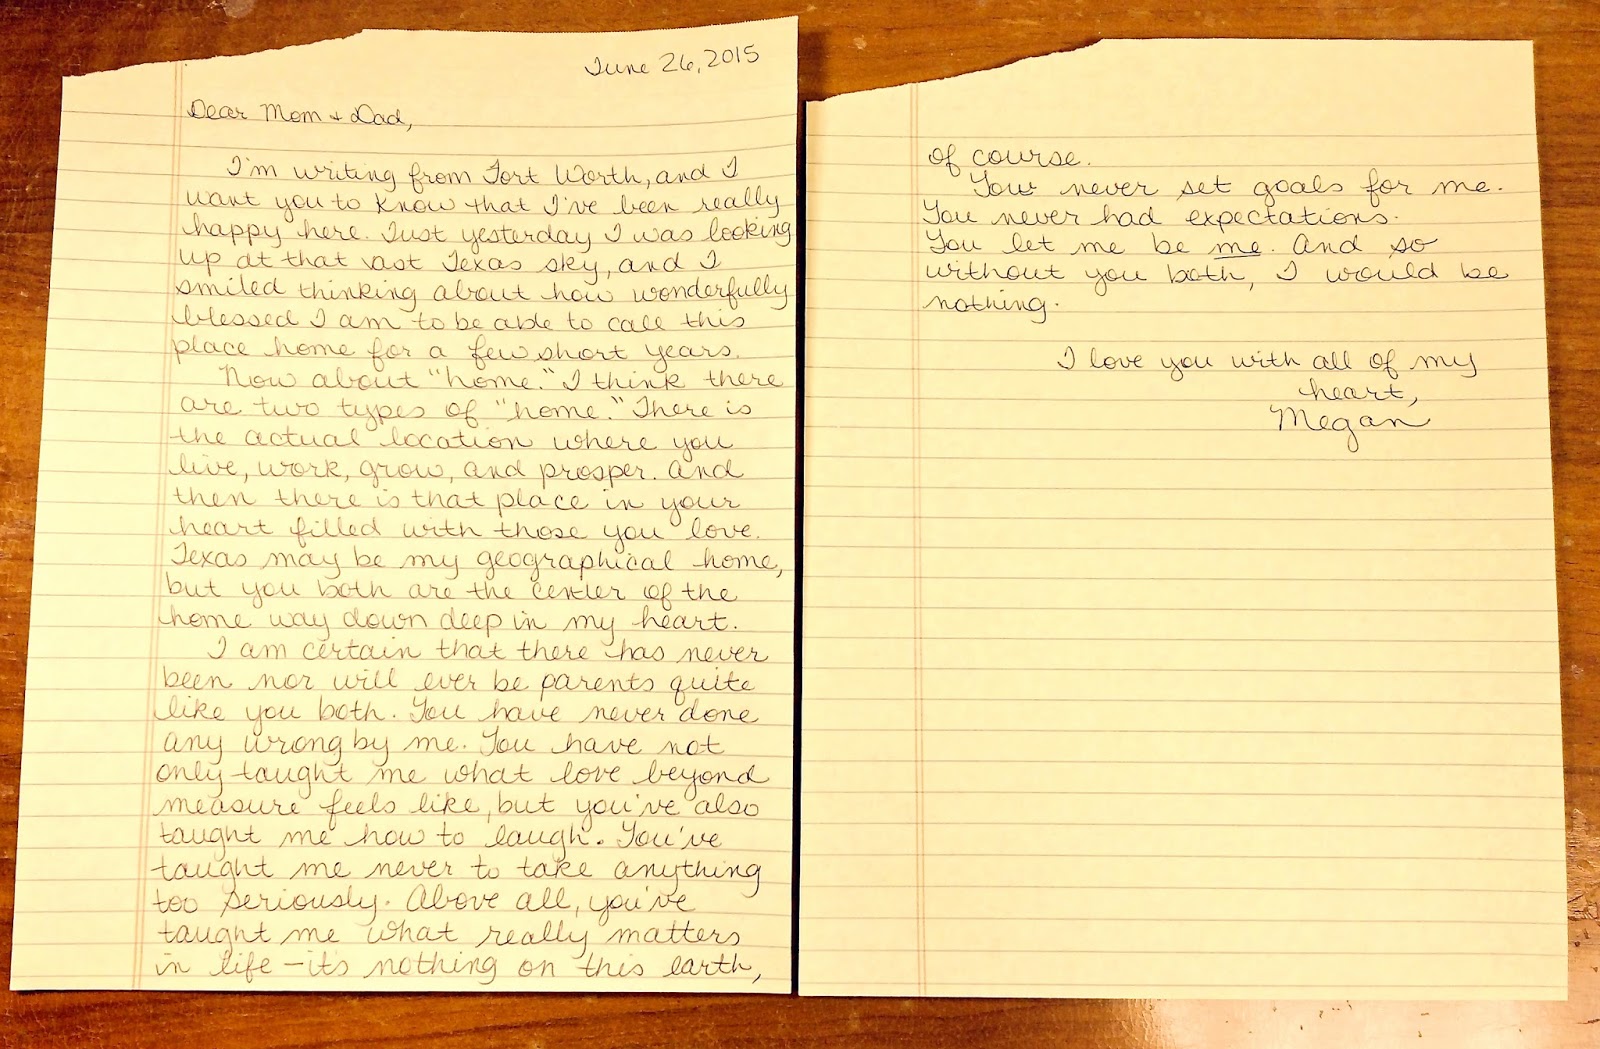 June 26, 2015
Dear Mom + Dad,
I'm writing from Fort Worth, and I
want you to know that I've been really
happy here. Just yesterday I was looking
up at that vast Texas sky, and I
smiled thinking about how wonderfully
blessed I am to be able to call this
place home for a few short years.
Now about "home." I think there
are two types of "home." There is
the actual location where you
live, work, grow, and prosper. And
then there is that place in your
heart filled with those you love.
Texas may be my geographical home,
but you both are the center of the
home way down deep in my heart.
I am certain that there has never
been nor will ever be parents quite
like you both. You have never done
any wrong by me. You have not
only taught me what love beyond
measure feels like, but you've also
taught me how to laugh. You've
taught me never to take anything
too seriously. Above all, you've
taught me what really matters
in life – it's nothing on this earth,
of course.
You never set goals for me.
You never had expectations.
You let me be me. And so
without you both, I would be
nothing.
I love you with all of my
heart,
Megan